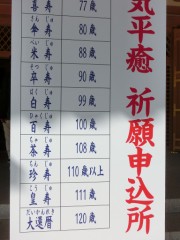 気平癒 祈願申込所
喜寿 77歳
さん じゅ
傘寿 80歳
べい じゅ
米寿 88歳
そつ じゅ
卒寿 90歳
はく じゅ
白寿 99歳
ひゃくじゅ
百寿 100歳
ちゃ じゅ
茶寿 108歳
ちん じゅ
珍寿 110歳以上
こう じゅ
皇寿 111歳
だいかんれき
大還暦 120歳